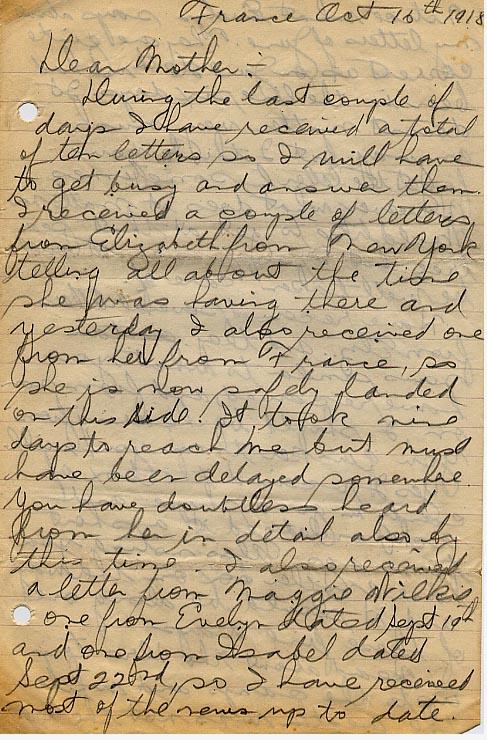 France Oct 10th 1918
Dear Mother :-
During the last couple of
days I have received a total
of ten letters so I will have
to get busy and answer them.
I received a couple of letters
from Elizabeth from New York
telling all about the time
she was having there and
yesterday I also received one
from her from France, so
she is now safely landed
on this side. It took nine
days to reach me but must
have been delayed somewhere
You have doubtless heard
from her in detail also by
this time. I also received
a letter from Maggie Wilkie
one from Evelyn dated Sept 19th
and one from Isabel dated
Sept 22nd, so I have received
most of the news up to date.